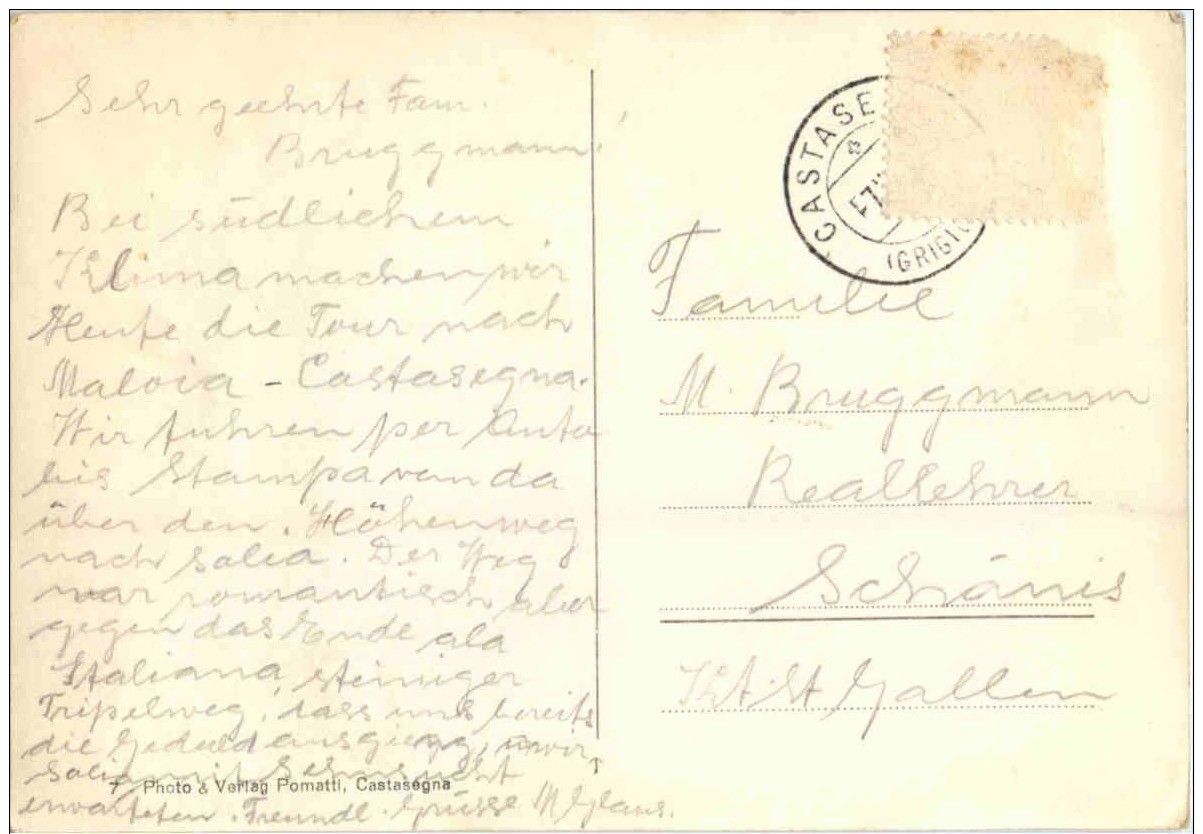 Sehr geehrte Fam.
Bruggmann.
Bei südlichem
Klima machen wir
Heute die Tour nach
Maloia - Castasegna.
Wir fuhren per Auto
bis Stampa von da
über den Höhenweg
nach Solia. Der Weg
war romantisch aber
gegen das Ende ala
Italiana, steiniger
Tripelweg, dass uns bereits
die Geduld ausgieng, u wir
Solia mit Sehnsucht
erwarteten. Freundl. Grüsse M
7 Photo & Verlag Pomatti, Castasegna
CASTASE
(GRIGIO
Familie
M. Bruggmann
Reallehrer
Schänis
Kt. St. Gallen